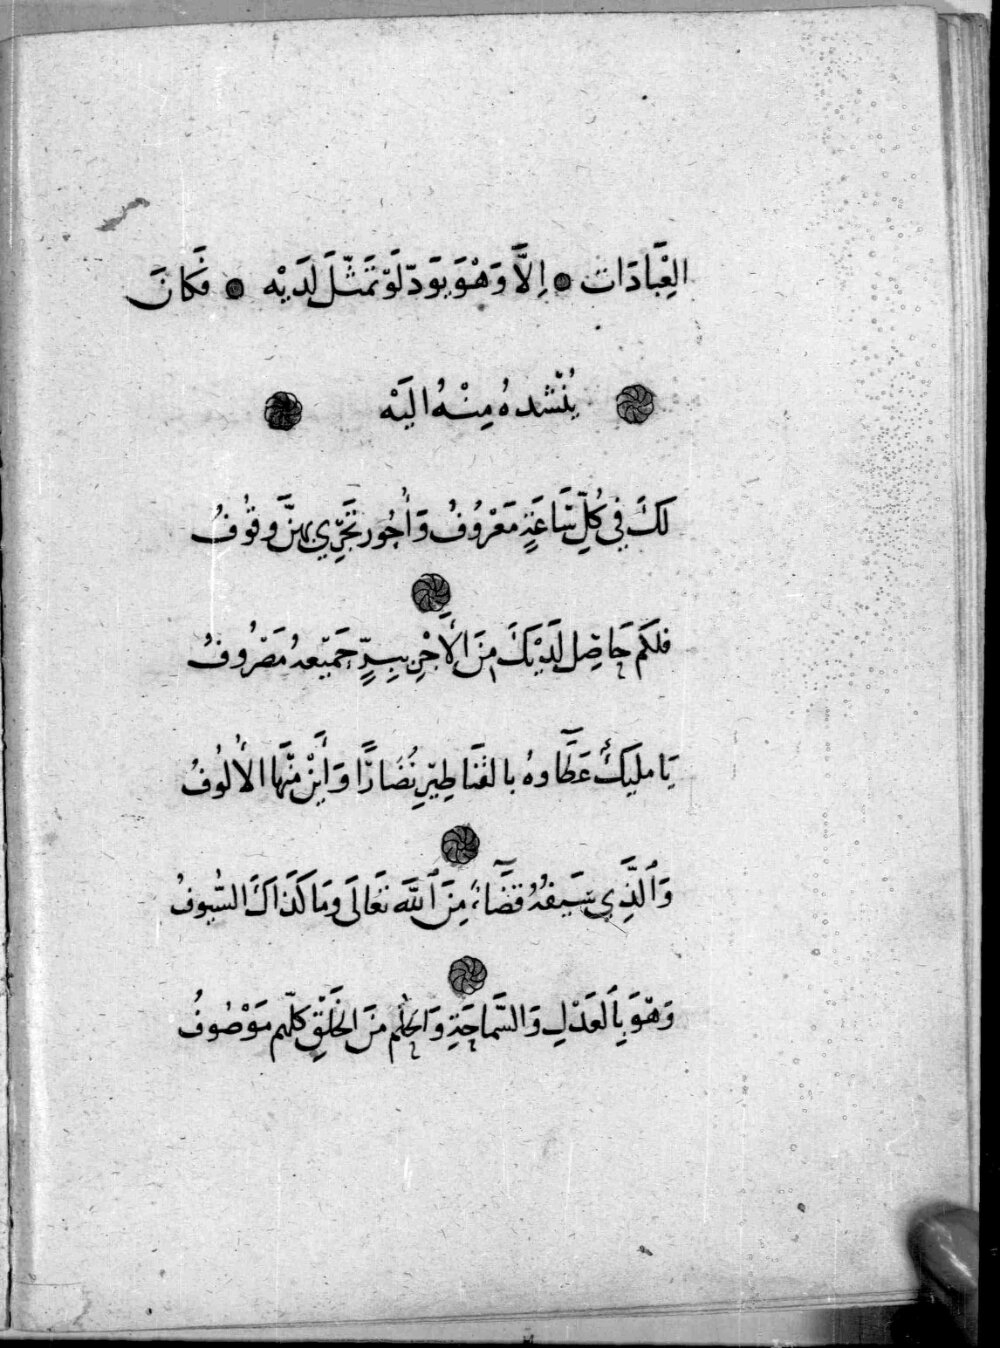 العِبَادَات ● اِلَّا وَهْوَ يَوَدّ لَوْ تَمَثّلَ لَدَيْه ● فَكَانَ
يُنْشدهُ مِنْهُ اليَهْ
لَكَ فِي كُلِّ سَاعَةٍ مَعْرُوفُ وَأُجُور تَجْرِي بهنَّ وقُوفُ
فلكَم حَاصِل لَدَيْكَ مِنَ الأَجْرِ بِبِرٍّ جَمْيعهُ مَصْرُوفُ
يَا مليكًا عَطَاوهُ بالقَنَاطِيْرِ نُضَارًا وَأَيْنَ مِنْهَا الأُلُوفُ
وَٱلَّذِي سَيفُهُ قضَآءٌ مِنَ ٱللَّهَ تَعَالَى وَمَا كَذَاكَ السُّيوفُ
وَهْوَ بِالعَدْلِ وَالسَّمَاحَةِ وَالحِلْم مِنَ الخَلْقِ كلّهم مَوْصُوفُ